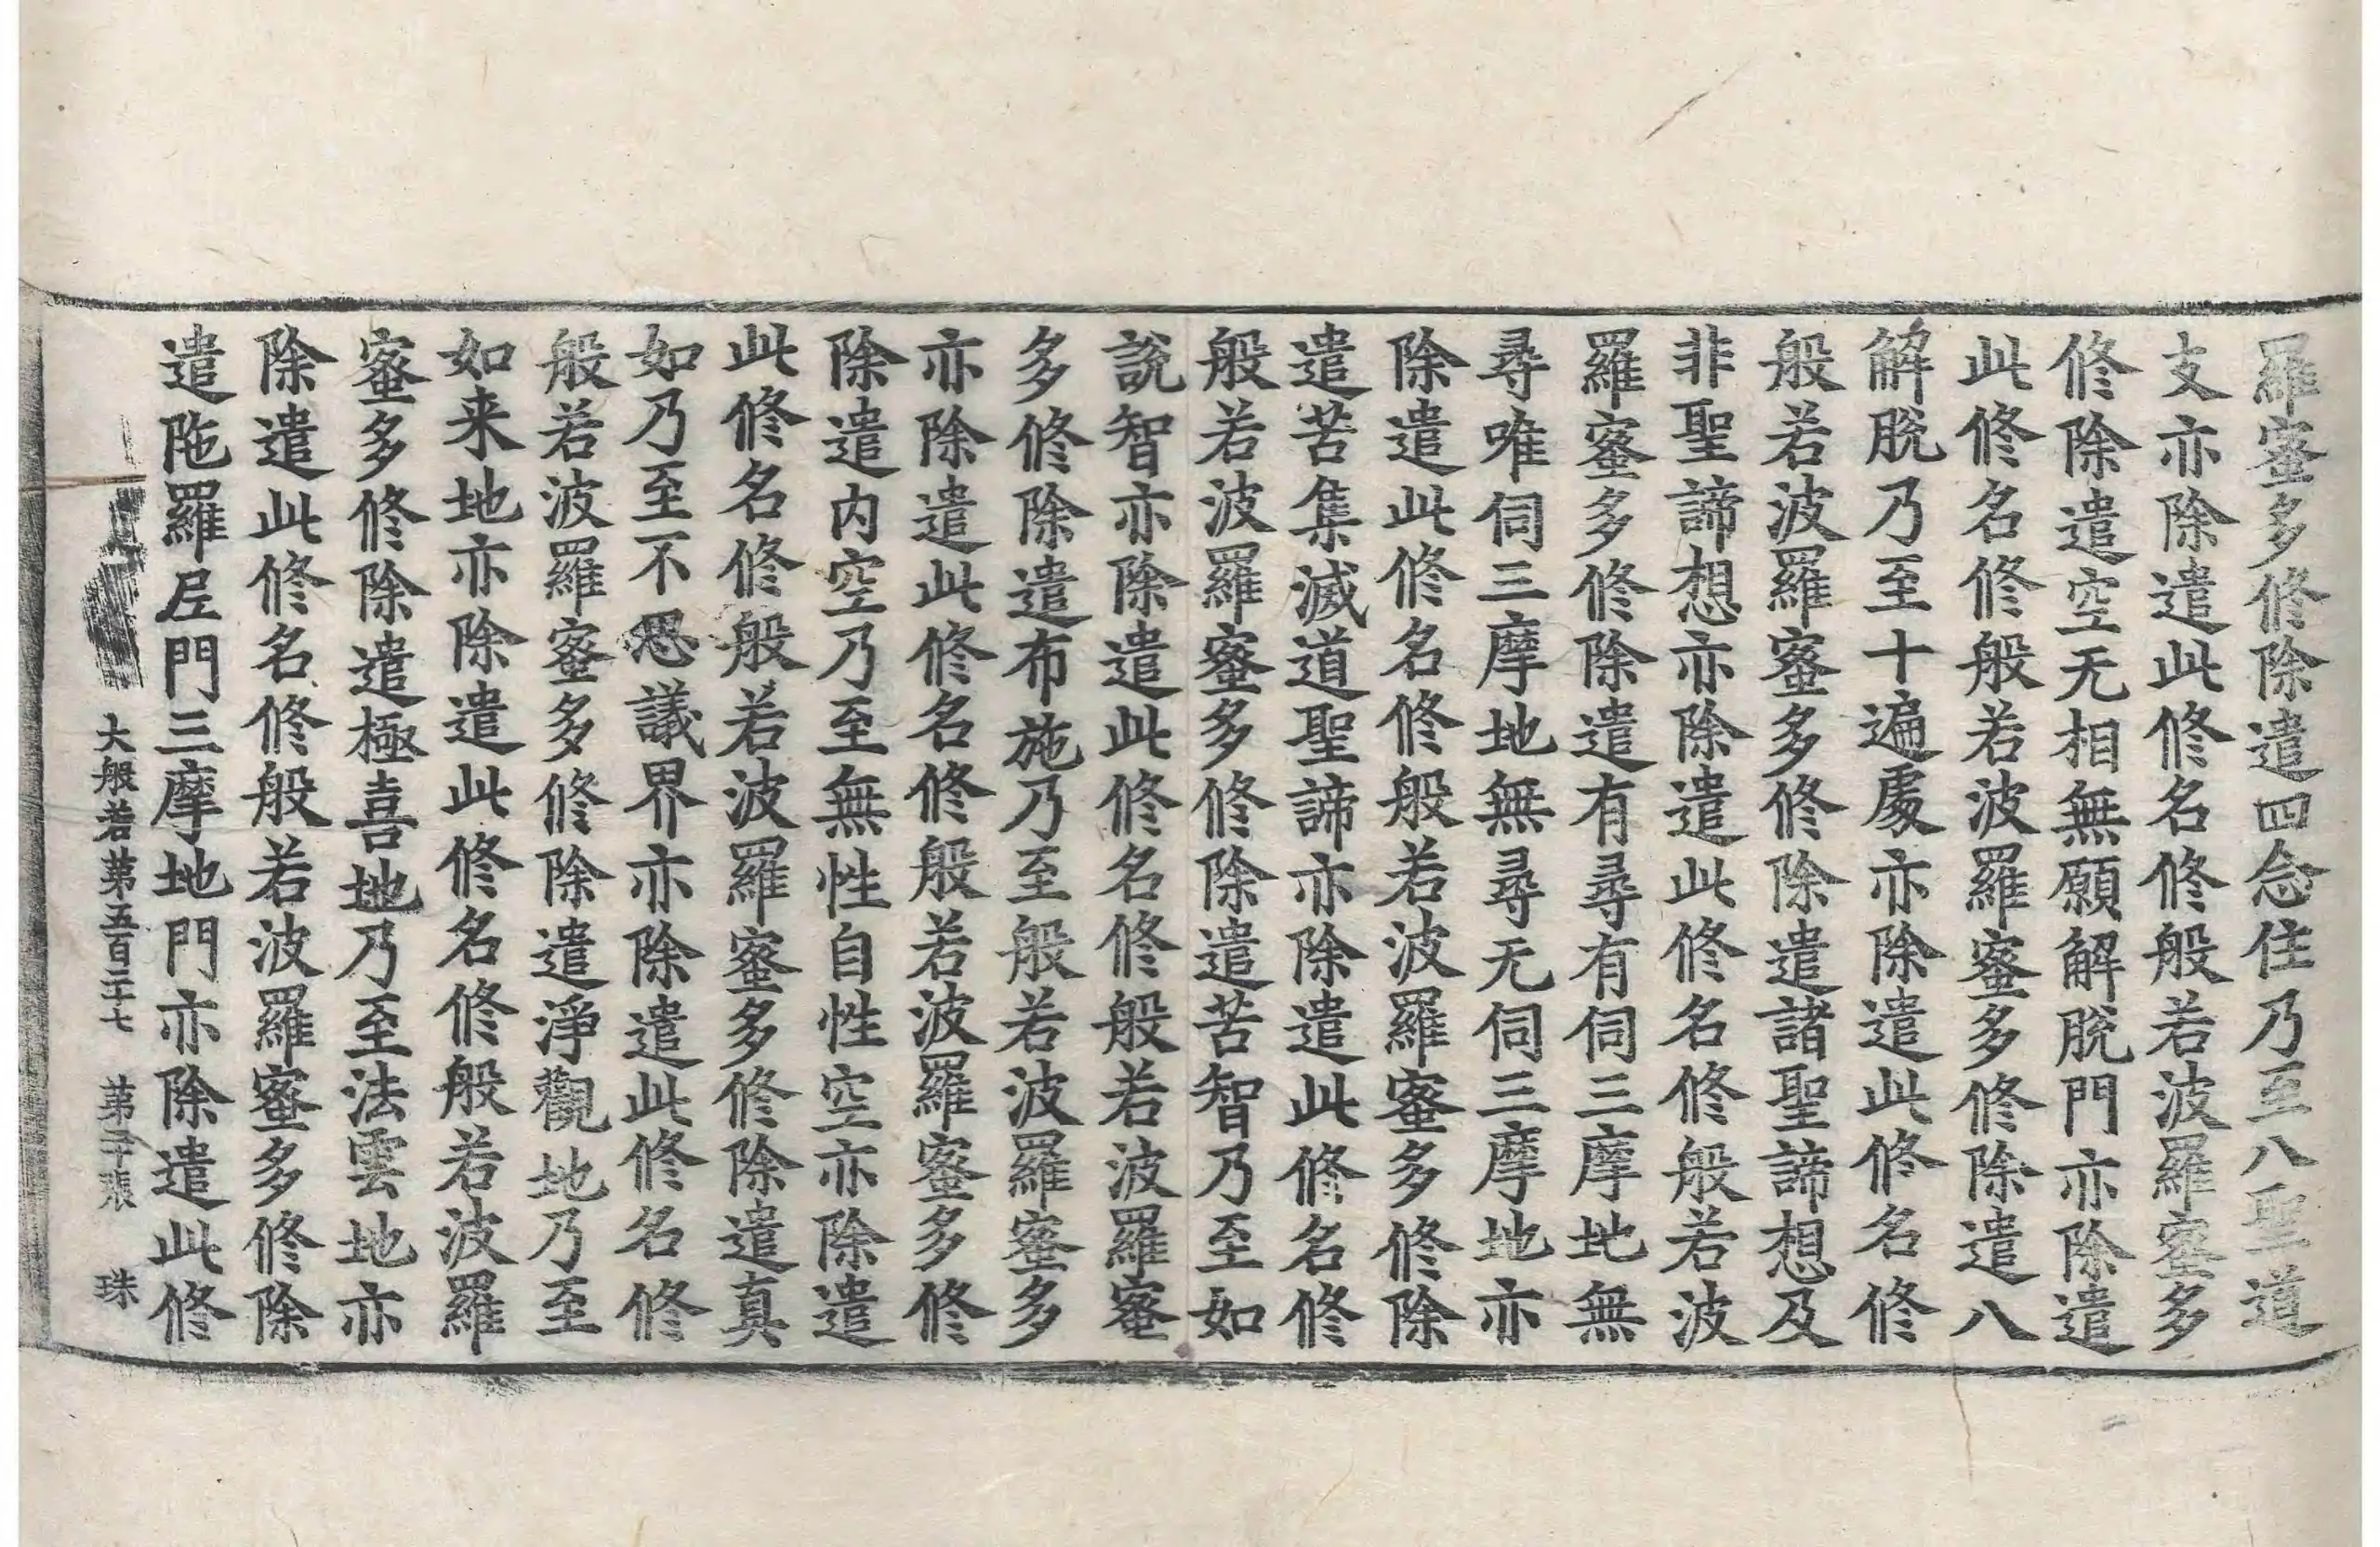 羅蜜多修除遣四念住乃至八聖道
支亦除遣此修名修般若波羅蜜多
修除遣空无相無願解脫門亦除遣
此修名修般若波羅蜜多修除遣八
解脫乃至十遍處亦除遣此修名修
般若波羅蜜多修除遣諸聖諦想及
非聖諦想亦除遣此修名修般若波
羅蜜多修除遣有尋有伺三摩地無
尋唯伺三摩地無尋无伺三摩地亦
除遣此修名修般若波羅蜜多修除
遣苦集滅道聖諦亦除遣此修名修
般若波羅蜜多修除遣苦智乃至如
說智亦除遣此修名修般若波羅蜜
多修除遣布施乃至般若波羅蜜多
亦除遣此修名修般若波羅蜜多修
除遣內空乃至無性自性空亦除遣
此修名修般若波羅蜜多修除遣真
如乃至不思議界亦除遣此修名修
般若波羅蜜多修除遣淨觀地乃至
如来地亦除遣此修名修般若波羅
蜜多修除遣極喜地乃至法雲地亦
除遣此修名修般若波羅蜜多修除
遣陁羅尼門三摩地門亦除遣此修
大般若第五百二十七 第 張 珠